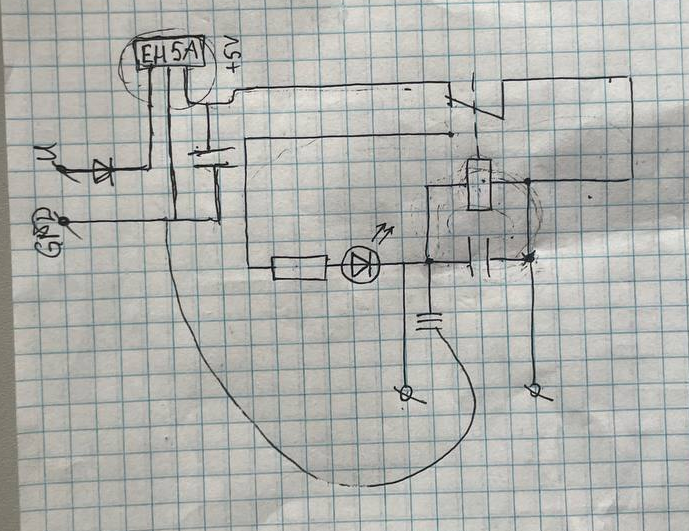 EH5A
+5V
GND